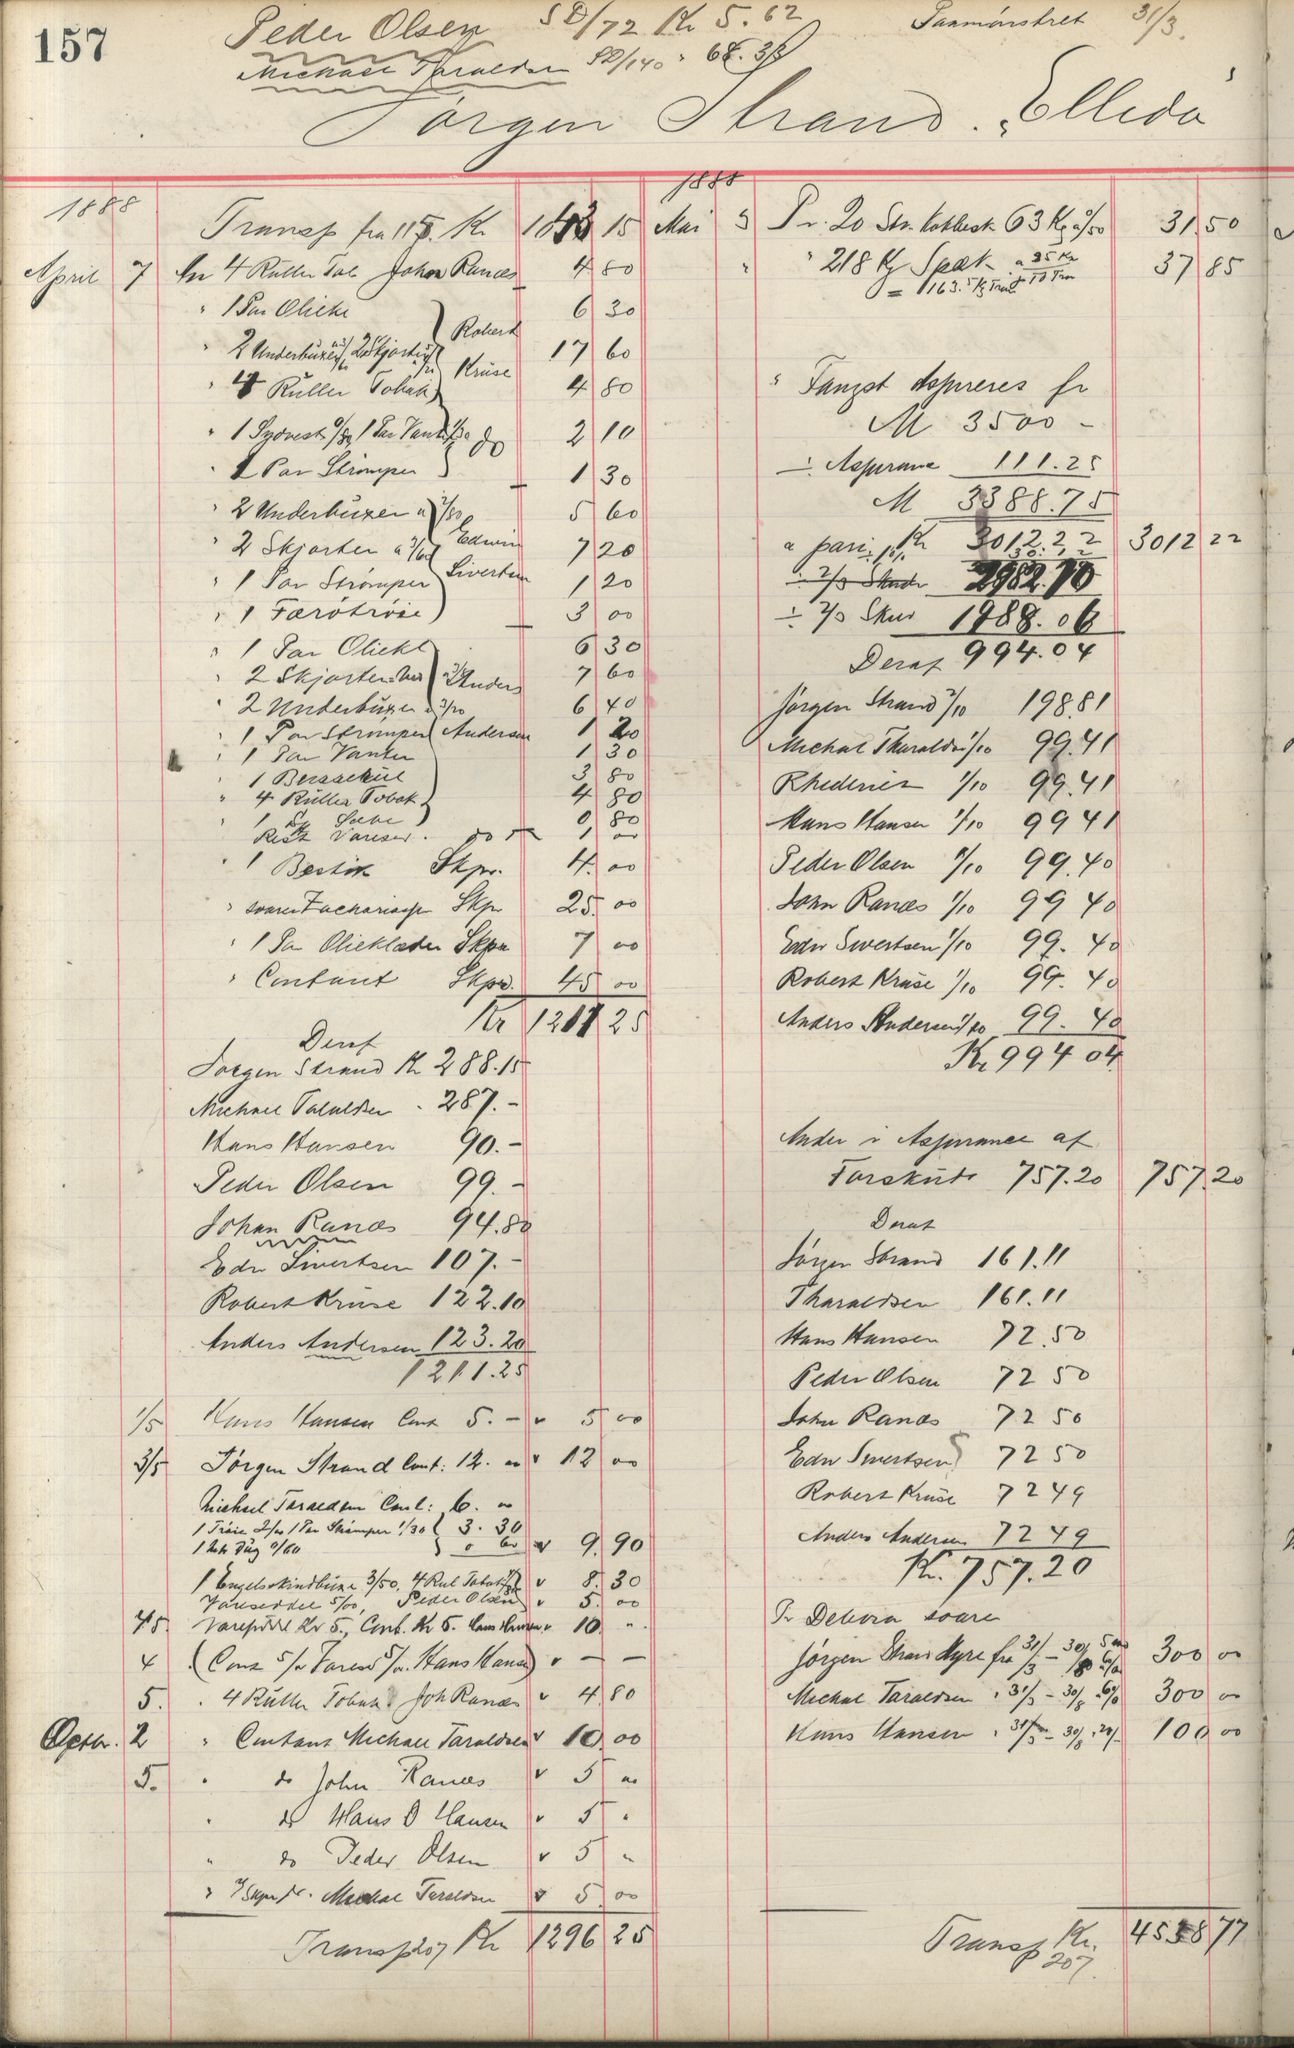 157
Peder Olsen SD/72 Kr 5.62 Paamönstret 31/3.
Michael Taraldsen SD/140 " 68.33
Jørgen Strand. "Ellida"
1888
Transp fra 115. Kr 15
April 7 An 4 Ruller Tob. Johan Ranæs 4 80
" 1 Par Oliekl 6 30
" 2 Underbuxer 2 Skjorter 17 60
Robert Kruse
" 4 Ruller Tobak 4 80
" 1 Sydvest 1 Par Vanter do 2 10
" 1 Par Strömper 1 30
" 2 Underbuxer a 2/80 5 60
" 2 Skjorter a 3/60 Edwin Sivertsen 7 20
" 1 Par Strömper 1 20
" 1 Færötröie 3 00
" 1 Par Oliekl 6 30
" 2 Skjorter Anders 7 60
" 2 Underbuxer a 3/20 6 40
" 1 Par Strömper Andersen 1 20
" 1 Par Vanter 1 30
" 1 3 80
" 4 Ruller Tobak 4 80
" 1 Sæbe 0 80
Rest Vareser. do 1 00
" 1 Bestik Skpr. 4. 00
" Skpr 25. 00
" 1 Par Olieklæder Skpr 7 00
" Contant Skpr. 45 00
Kr 1211 25
Deraf
Jørgen Strand Kr 288.15
Michael Taraldsen " 287.-
Hans Hansen 90.-
Peder Olsen 99.-
Johan Ranæs 94.80
Edw Sivertsen 107.-
Robert Kruse 122.10
Anders Andersen 123.20
1211.25
1/5 Hans Hansen Cont 5.- v 5 00
3/5 Jørgen Strand Cont: 12. 00 v 12 00
Michael Taraldsen Cont: 6. 00
1 Tröie 2/00 1 Par Strömper 1/30 3.30
0/60 0 60 v 9. 90
1 Engelskindbuxe 3/50, 4 Rul Tobak v 8. 30
5/00, Peder Olsen v 5. 00
Kr 5, Cont. Kr 5. Hans Hansen v 10 "
4 (Cont 5/00 5/00 Hans Hansen) v - -
5. " 4 Ruller Tobak Joh Ranæs v 4 80
2 " Contant Michael Taraldsen v 10. 00
5. " do John Ranæs v 5 00
" do Hans O Hansen v 5 "
" do Peder Olsen v 5 "
" Michal Taraldsen v 5 00
Transp 207 Kr 1296 25
1888
Mai 5 Pr. 20 63 Kg a /50 31. 50
" " 218 Kg Spæk a 25 Kr 37 85
= 163.5 Kg Tran
" Fangst Aspureres for
M 3500 -
÷ Aspurane 111.25
M 3388.75
a pari Kr 3012.22 3012 22
÷ 1%
÷ 2/3 Skude 2982.10
÷ 2/3 Skud 1988.06
Deraf 994.04
Jørgen Strand 2/10 198.81
Michal Tharaldsen 1/10 99.41
Rhederiet 1/10 99.41
Hans Hansen 1/10 99 41
Peder Olsen 1/10 99.40
John Ranæs 1/10 99 40
Edw Sivertsen 1/10 99. 40
Robert Kruse 1/10 99. 40
Anders Andersen 1/10 99. 40
Kr 994 04
Andel i Aspurance af
Forskud 757.20 757.20
Deraf
Jørgen Strand 161.11
Tharaldsen 161.11
Hans Hansen 72.50
Peder Olsen 72 50
John Ranæs 72 50
Edw Sivertsen 72 50
Robert Kruse 72 49
Anders Andersen 72 49
Kr. 757.20
Pr Debora
Jørgen Strand Hyre fra 31/3 - 30/8 300 00
Michal Taraldsen " 31/3 - 30/8 300 00
Hans Hansen " 31/3 - 30/8 100 00
Transp Kr. 207. 4538 77